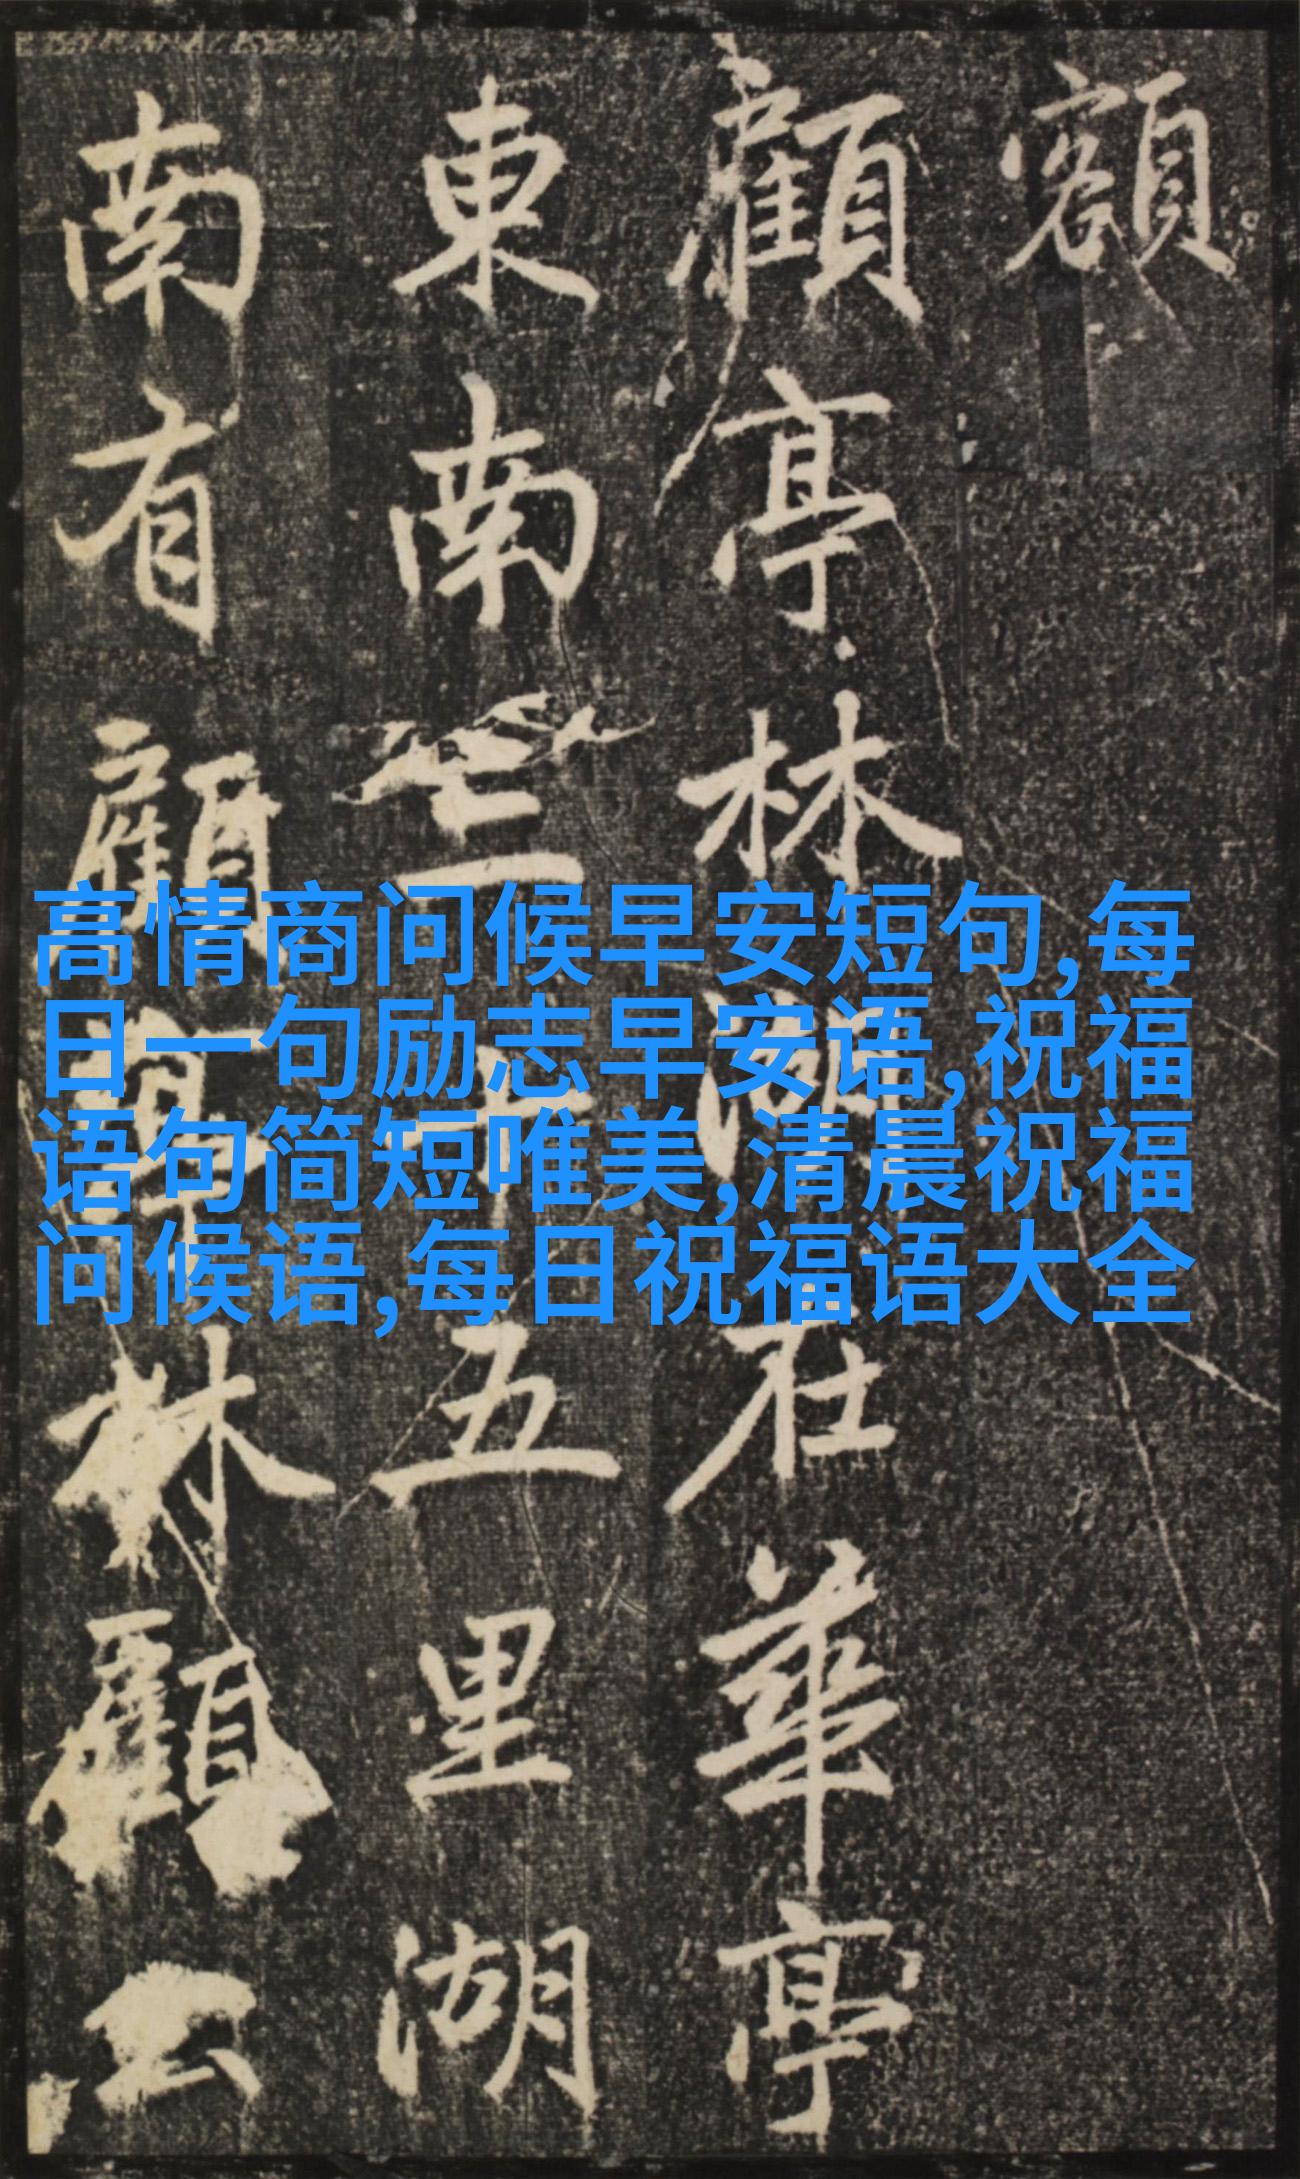 額
顧亭林湖在華亭
東南三十五里湖
南有顧亭林顧公
高情商问候早安短句,每
日一句励志早安语,祝福
语句简短唯美,清晨祝福
问候语,每日祝福语大全